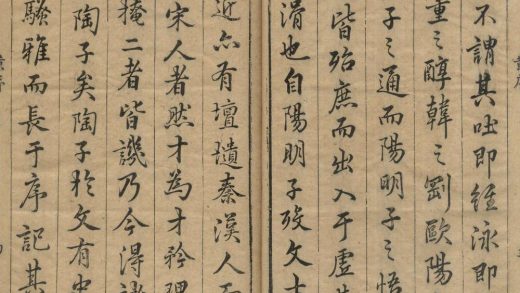 不謂其呿即經泳即
重之醇韓之剛歐陽
子之通而陽明子之悟
皆殆庶而出入于虛
滑也自陽明子歿文士
近亦有壇壝秦漢人而
宋人者然才為才矜理
掩二者皆譏乃今得諸
陶子矣陶子於文有史
騷雅而長于序記其